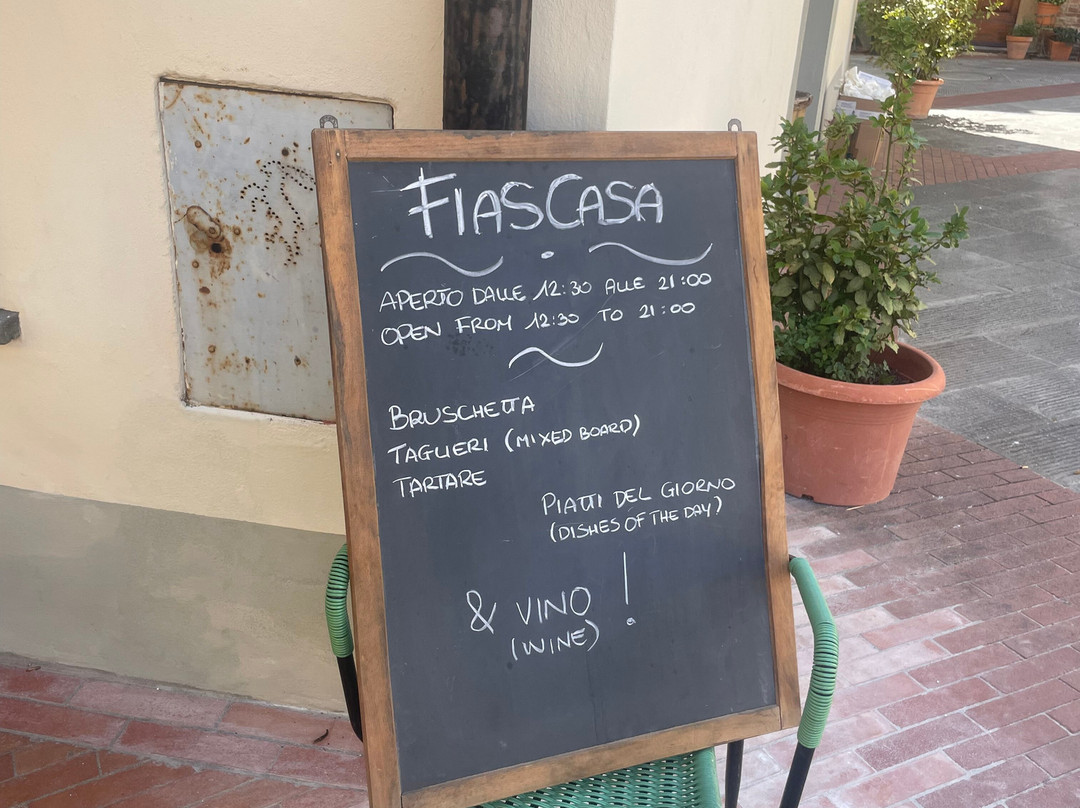 FIASCASA
APERTO DALLE 12:30 ALLE 21:00
OPEN FROM 12:30 TO 21:00
BRUSCHETTA
TAGLIERI (MIXED BOARD)
TARTARE
PIATTI DEL GIORNO
(DISHES OF THE DAY)
& VINO !
(WINE)